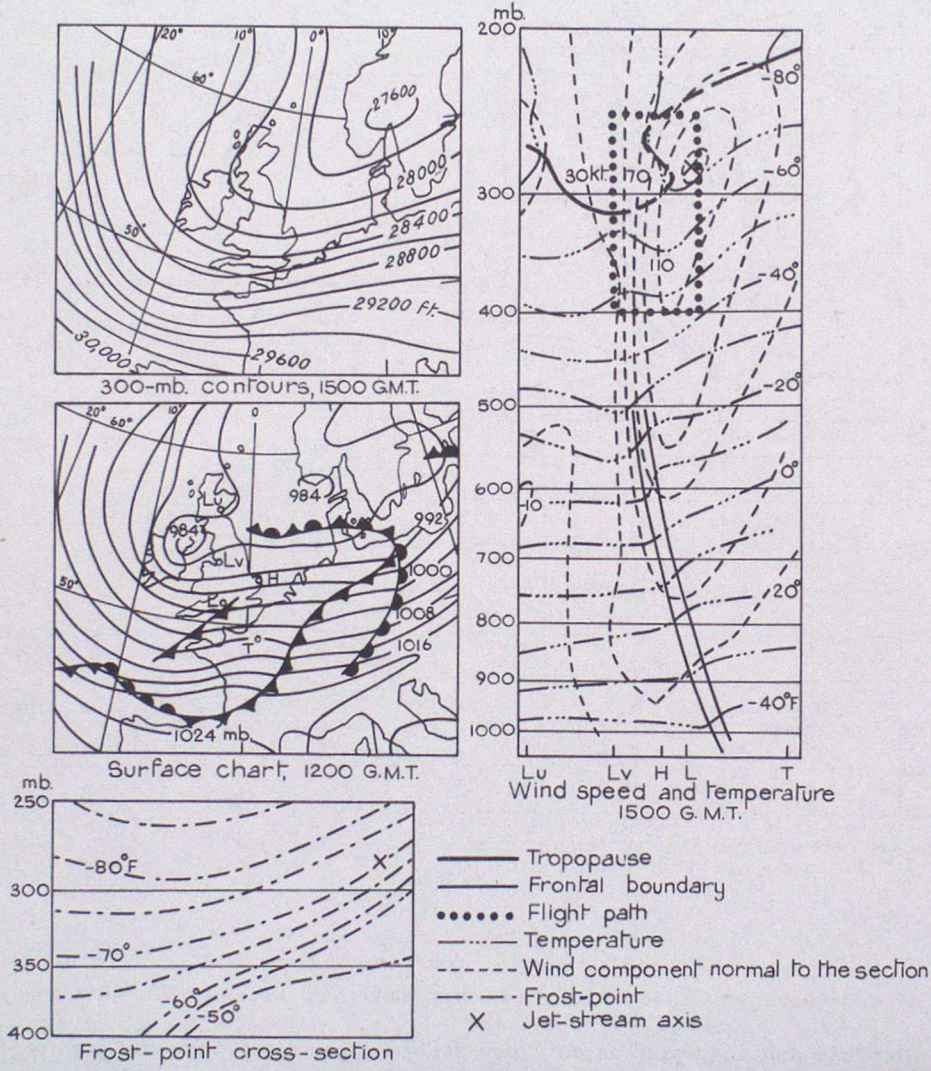 20° 10° 0° 10°
60°
27600
28000
50°
28400
28800
29200 ft.
30,000
29600
300-mb. contours, 1500 G.M.T.
20° 60° 10° 0
984
992
984
Lu
Lv
H
1000
50°
L
1008
T
1016
1024 mb.
Surface chart, 1200 G.M.T.
mb.
200
-80°
30kt. 70
-60°
300
110
-40°
400
-20°
500
0°
600
10
700
20°
800
900
-40°F
1000
Lu Lv H L T
Wind speed and temperature
1500 G.M.T.
mb.
250
-80°F
300
-70°
350
-60°
-50°
400
Frost-point cross-section
Tropopause
Frontal boundary
Flight path
Temperature
Wind component normal to the section
Frost-point
X Jet-stream axis